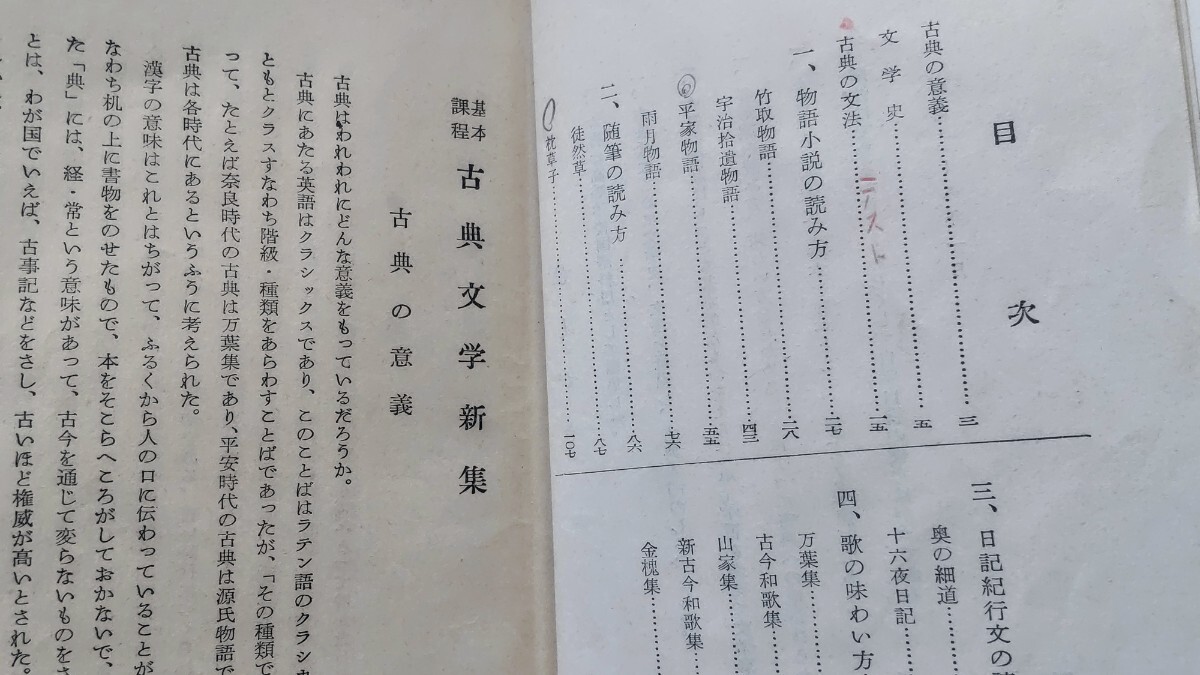 目次
古典の意義……三
文学史……五
古典の文法……一五
テスト
一、物語小説の読み方……二七
竹取物語……二八
宇治拾遺物語……四三
平家物語……五五
雨月物語……七六
二、随筆の読み方……八六
徒然草……八七
枕草子……一〇七
三、日記紀行文の
奥の細道……
十六夜日記……
四、歌の味わい方
万葉集……
古今和歌集……
山家集……
新古今和歌集
金槐集……
基本課程 古典文学新集
古典の意義
古典はわれわれにどんな意義をもっているだろうか。
古典にあたる英語はクラシックスであり、このことばはラテン語のクラシカ
ともとクラスすなわち階級・種類をあらわすことばであったが、「その種類で
って、たとえば奈良時代の古典は万葉集であり、平安時代の古典は源氏物語で
古典は各時代にあるというふうに考えられた。
漢字の意味はこれとはちがって、ふるくから人の口に伝わっていることが
なわち机の上に書物をのせたもので、本をそこらへころがしておかないで、
た「典」には、経・常という意味があって、古今を通じて変らないものをさ
とは、わが国でいえば、古事記などをさし、古いほど権威が高いとされた。